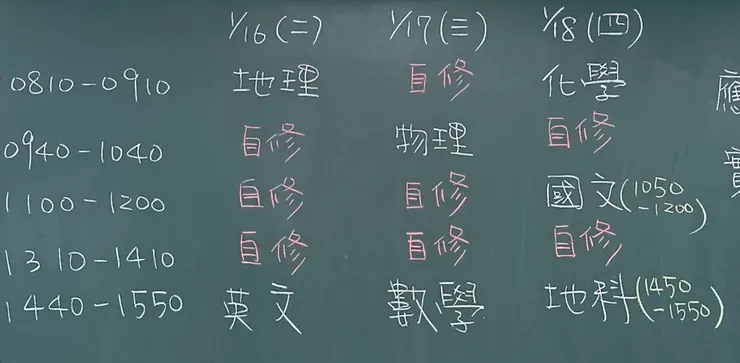 1/16(二) 1/17(三) 1/18(四)
0810-0910 地理 自修 化學 應
0940-1040 自修 物理 自修 實
1100-1200 自修 自修 國文(1050-1200)
1310-1410 自修 自修 自修
1440-1550 英文 數學 地科(1450-1550)